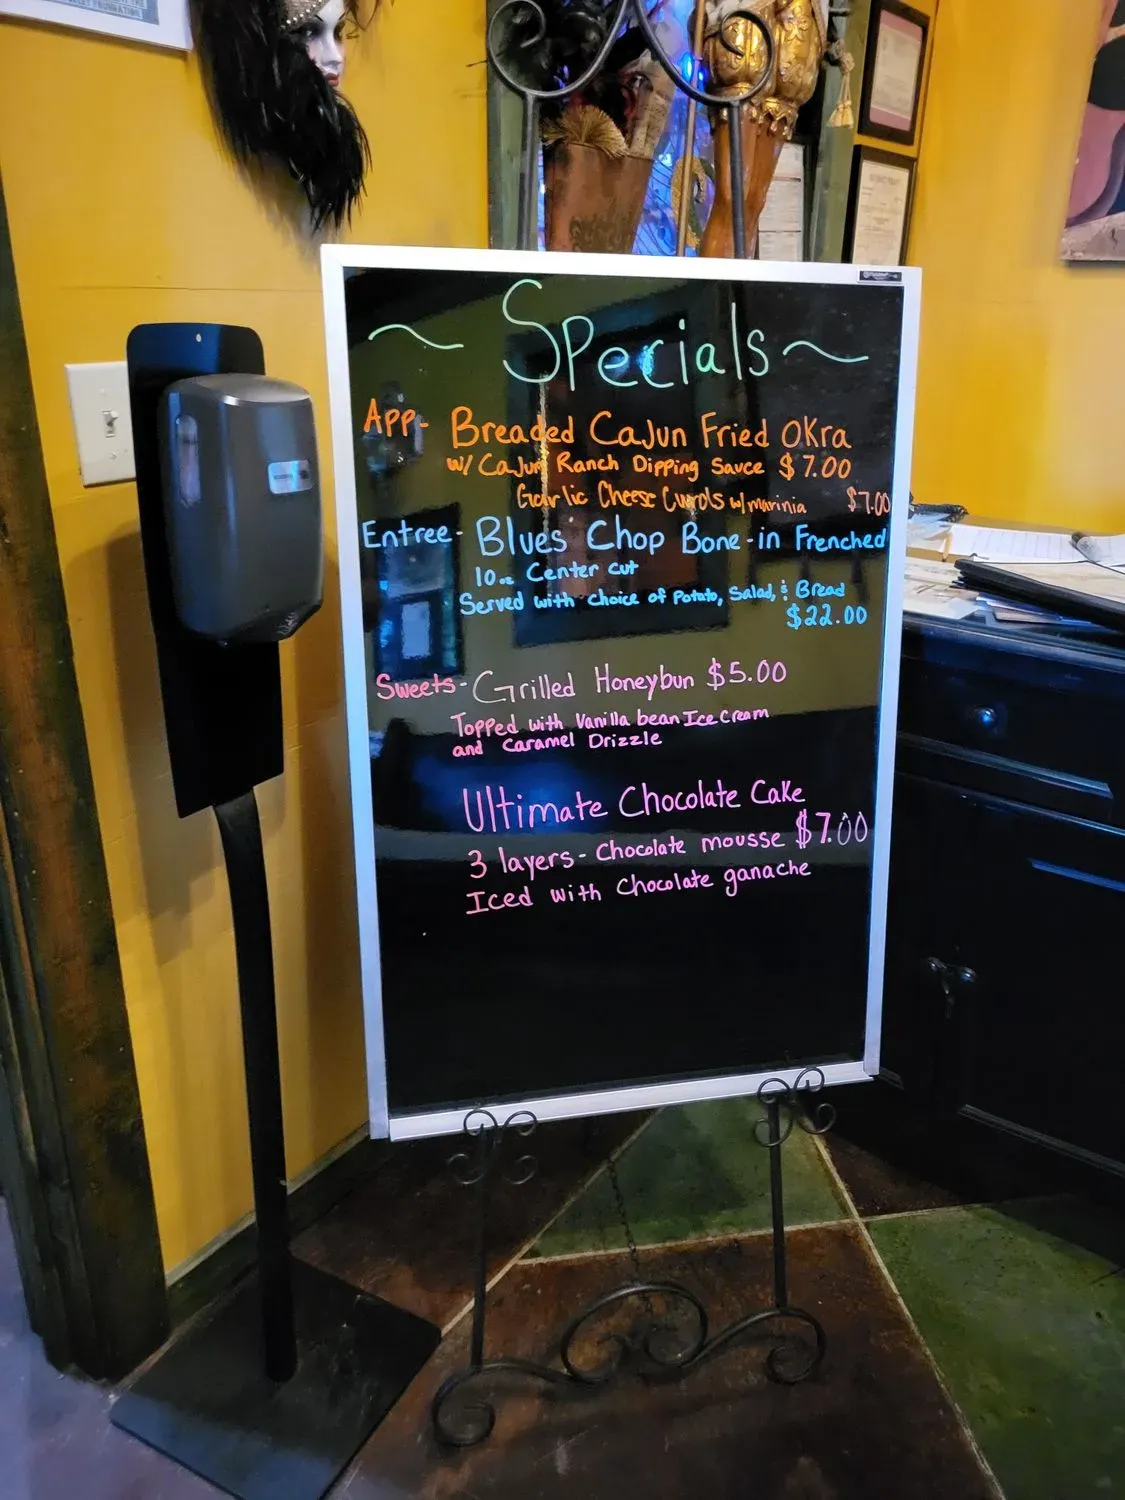 ~ Specials ~
App- Breaded Cajun Fried Okra
w/ Cajun Ranch Dipping Sauce $7.00
Garlic Cheese Curds w/marinia $7.00
Entree- Blues Chop Bone-in Frenched
10oz Center cut
Served with choice of Potato, Salad, & Bread
$22.00
Sweets- Grilled Honeybun $5.00
Topped with Vanilla bean Ice Cream
and Caramel Drizzle
Ultimate Chocolate Cake
3 layers- Chocolate mousse $7.00
Iced with Chocolate ganache